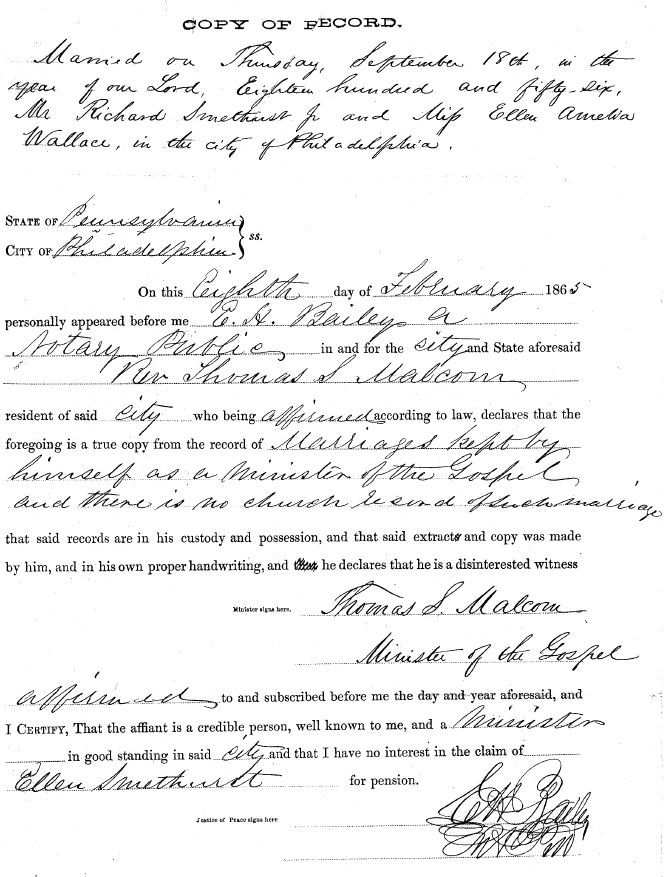 COPY OF RECORD.
Married on Thursday, September 18th, in the
year of our Lord, Eighteen hundred and fifty-six,
Mr Richard Smethurst Jr and Miss Ellen Amelia
Wallace, in the city of Philadelphia.
STATE OF Pennsylvania
CITY OF Philadelphia } ss.
On this Eighth day of February 1865
personally appeared before me E. H. Bailey a
Notary Public in and for the city and State aforesaid
Rev Thomas S Malcom
resident of said city who being affirmed according to law, declares that the
foregoing is a true copy from the record of Marriages kept by
himself as a Minister of the Gospel
and there is no church record of such marriage
that said records are in his custody and possession, and that said extracts and copy was made
by him, and in his own proper handwriting, and he declares that he is a disinterested witness
Minister signs here. Thomas S. Malcom
Minister of the Gospel
affirmed to and subscribed before me the day and year aforesaid, and
I CERTIFY, That the affiant is a credible person, well known to me, and a Minister
in good standing in said city and that I have no interest in the claim of
Ellen Smethurst for pension.
E H Bailey
Justice of Peace signs here